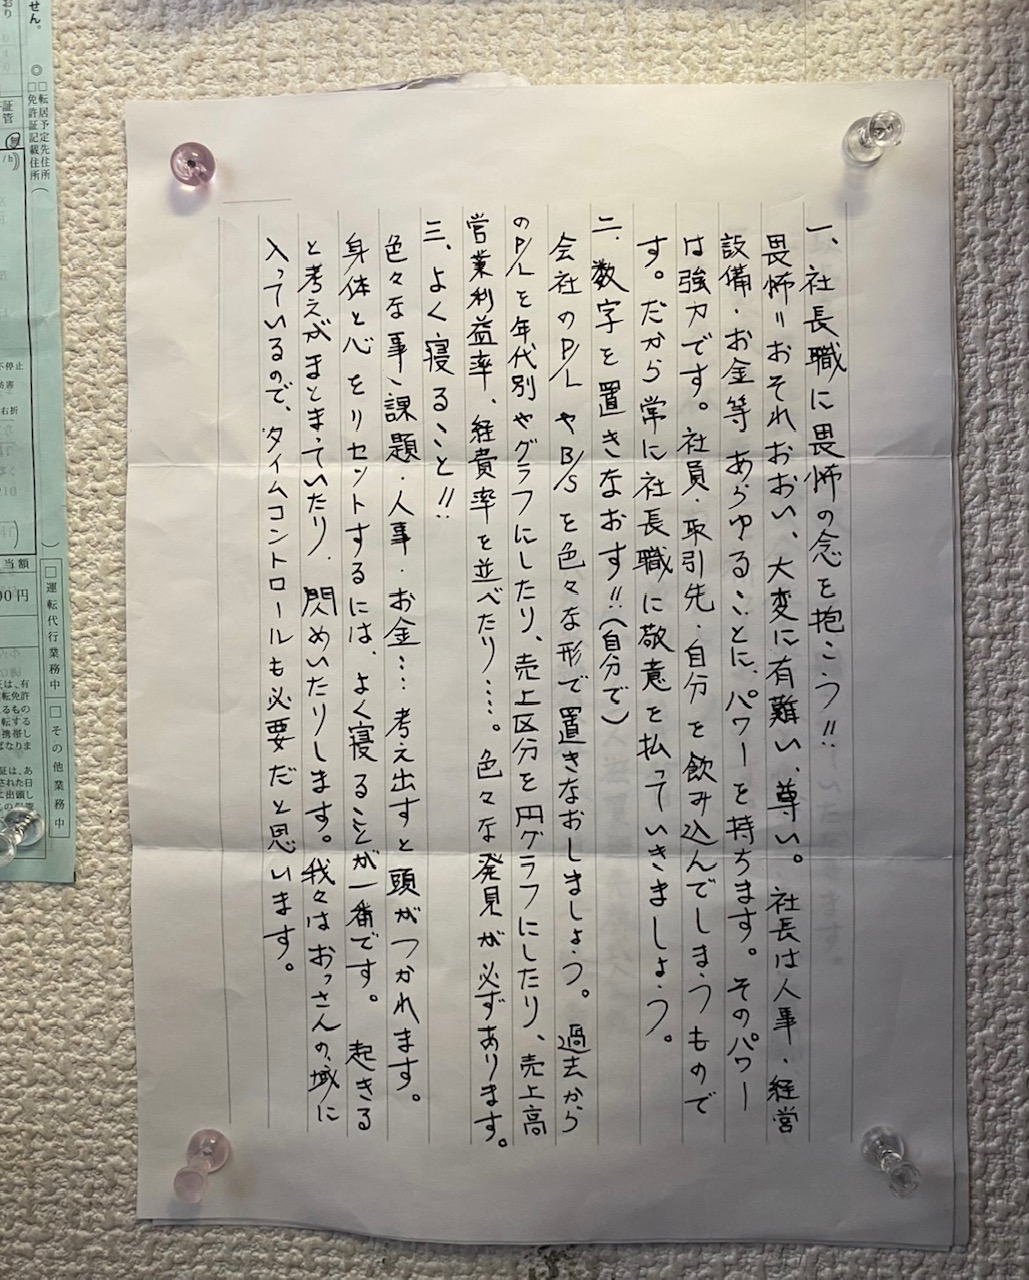 一、社長職に畏怖の念を抱こう!!
畏怖=おそれおおい、大変に有難い、尊い。社長は人事・経営
設備・お金等あらゆることに、パワーを持ちます。そのパワー
は強力です。社員・取引先・自分を飲み込んでしまうもので
す。だから常に社長職に敬意を払っていきましょう。
二、数字を置きなおす!!(自分で)
会社のP/LやB/Sを色々な形で置きなおしましょう。過去から
のP/Lを年代別やグラフにしたり、売上区分を円グラフにしたり、売上高
営業利益率、経費率を並べたり……。色々な発見が必ずあります。
三、よく寝ること!!
色々な事、課題・人事・お金…考え出すと頭がつかれます。
身体と心をリセットするには、よく寝ることが一番です。起きる
と考えがまとまっていたり、閃めいたりします。我々はおっさんの域に
入っているので、タイムコントロールも必要だと思います。
せん。
◎□転居予定先住所(
□免許証記載住所
無
不停止
右折
当額
00円
□運転代行業務中
□その他業務中